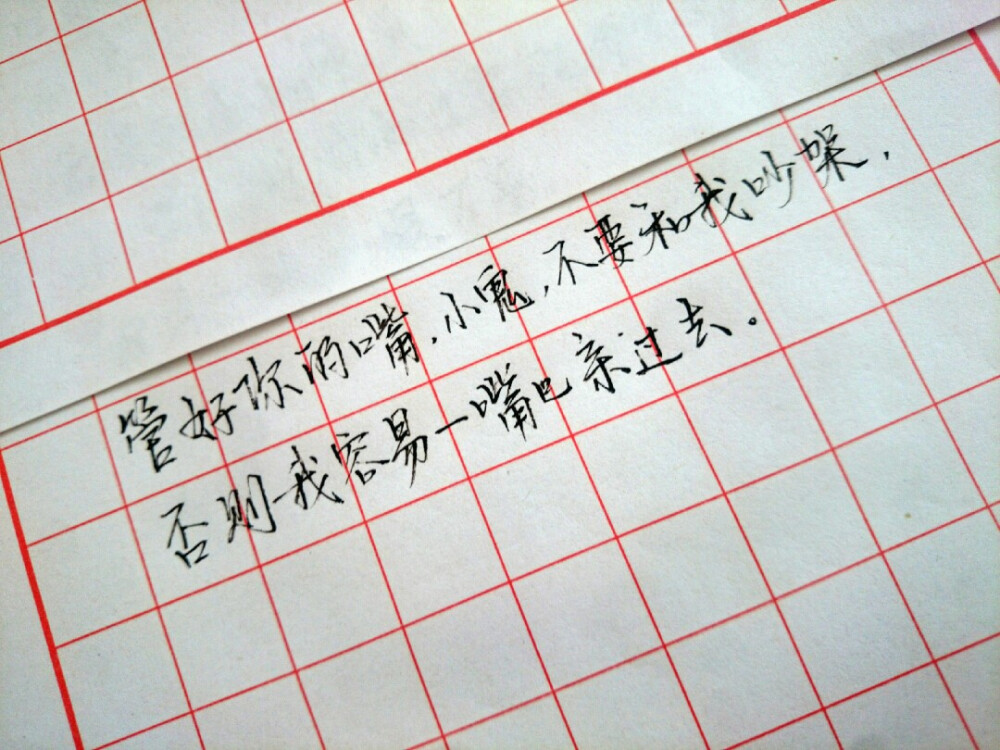 管好你的嘴,小鬼,不要和我吵架,
否则我容易一嘴巴亲过去。